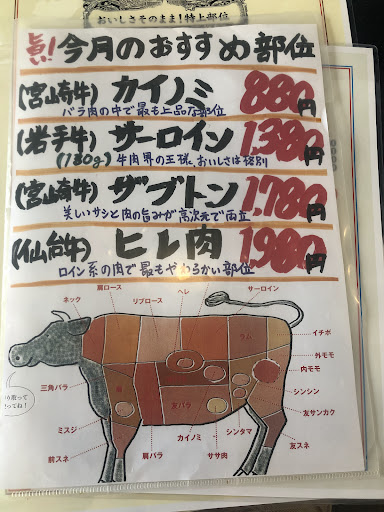 おいしさそのまま!特上部位
旨い!今月のおすすめ部位
(宮崎牛) カイノミ 880円
バラ肉の中で最も上品な部位
(岩手牛) サーロイン 1,380円
(130g) 牛肉界の王様、おいしさは格別
(宮崎牛) ザブトン 1,780円
美しいサシと肉の旨みが高次元で両立
(仙台牛) ヒレ肉 1,980円
ロイン系の肉で最もやわらかい部位
肩ロース
ヘレ
サーロイン
ネック
リブロース
ラム
イチボ
外モモ
内モモ
三角バラ
シンシン
友バラ
友サンカク
ミスジ
カイノミ
シンタマ
友スネ
前スネ
肩バラ
ササ肉